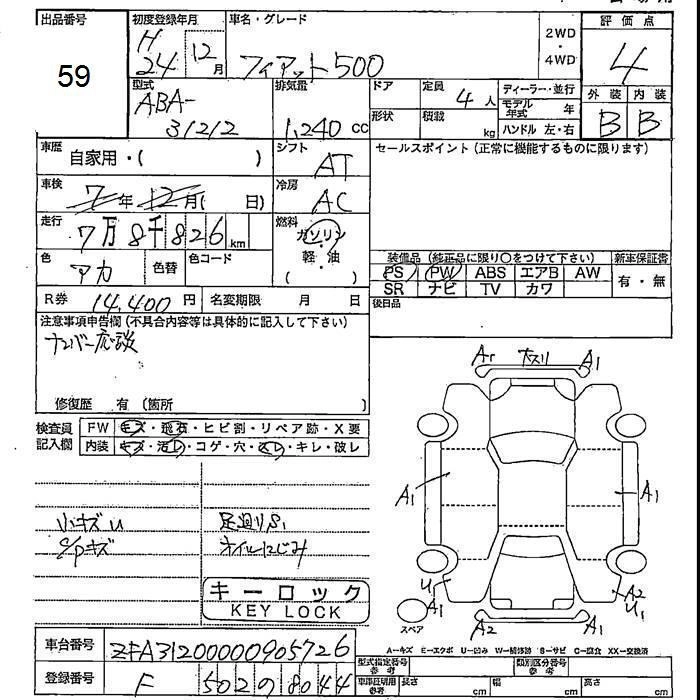 出品番号
59
初度登録年月
H
24 12月
車名・グレード
フィアット500
2WD
・
4WD
評価点
4
外装 内装
B B
型式
ABA-
31212
排気量
1,240 cc
ドア
定員
4 人
形状
積載
kg
ディーラー・並行
モデル年式 年
ハンドル 左・右
車歴
自家用・( )
シフト
AT
セールスポイント(正常に機能するものに限ります)
車検
7年 12月( 日)
冷房
AC
走行
7万8千826km
燃料
ガソリン
・
軽・油
( )
色
アカ
色替
色コード
装備品(純正品に限り○をつけて下さい)
新車保証書
PS PW ABS エアB AW
SR ナビ TV カワ
有・無
R券 14,400円
名変期限 月 日
後日品
注意事項申告欄(不具合内容等は具体的に記入して下さい)
ナンバー応談
修復歴 有(箇所 )
検査員
記入欄
FW キズ・飛石・ヒビ割・リペア跡・X要
内装 キズ・汚れ・コゲ・穴・スレ・キレ・破レ
小キズU
S/Pキズ
足廻りS1
オイルにじみ
キーロック
KEY LOCK
A1
A1
A1
U1
A1
A2
U1
A2
A1
スペア
A-キズ E-エクボ U-凹み W-補修跡 S-サビ C-腐食 XX-交換済
車台番号 ZFA31200000905726
登録番号 F 502 ﾜ 8044
型式指定番号
参考
類別区分番号
参考
車庫証明用
参考
長さ cm
幅 cm
高さ cm